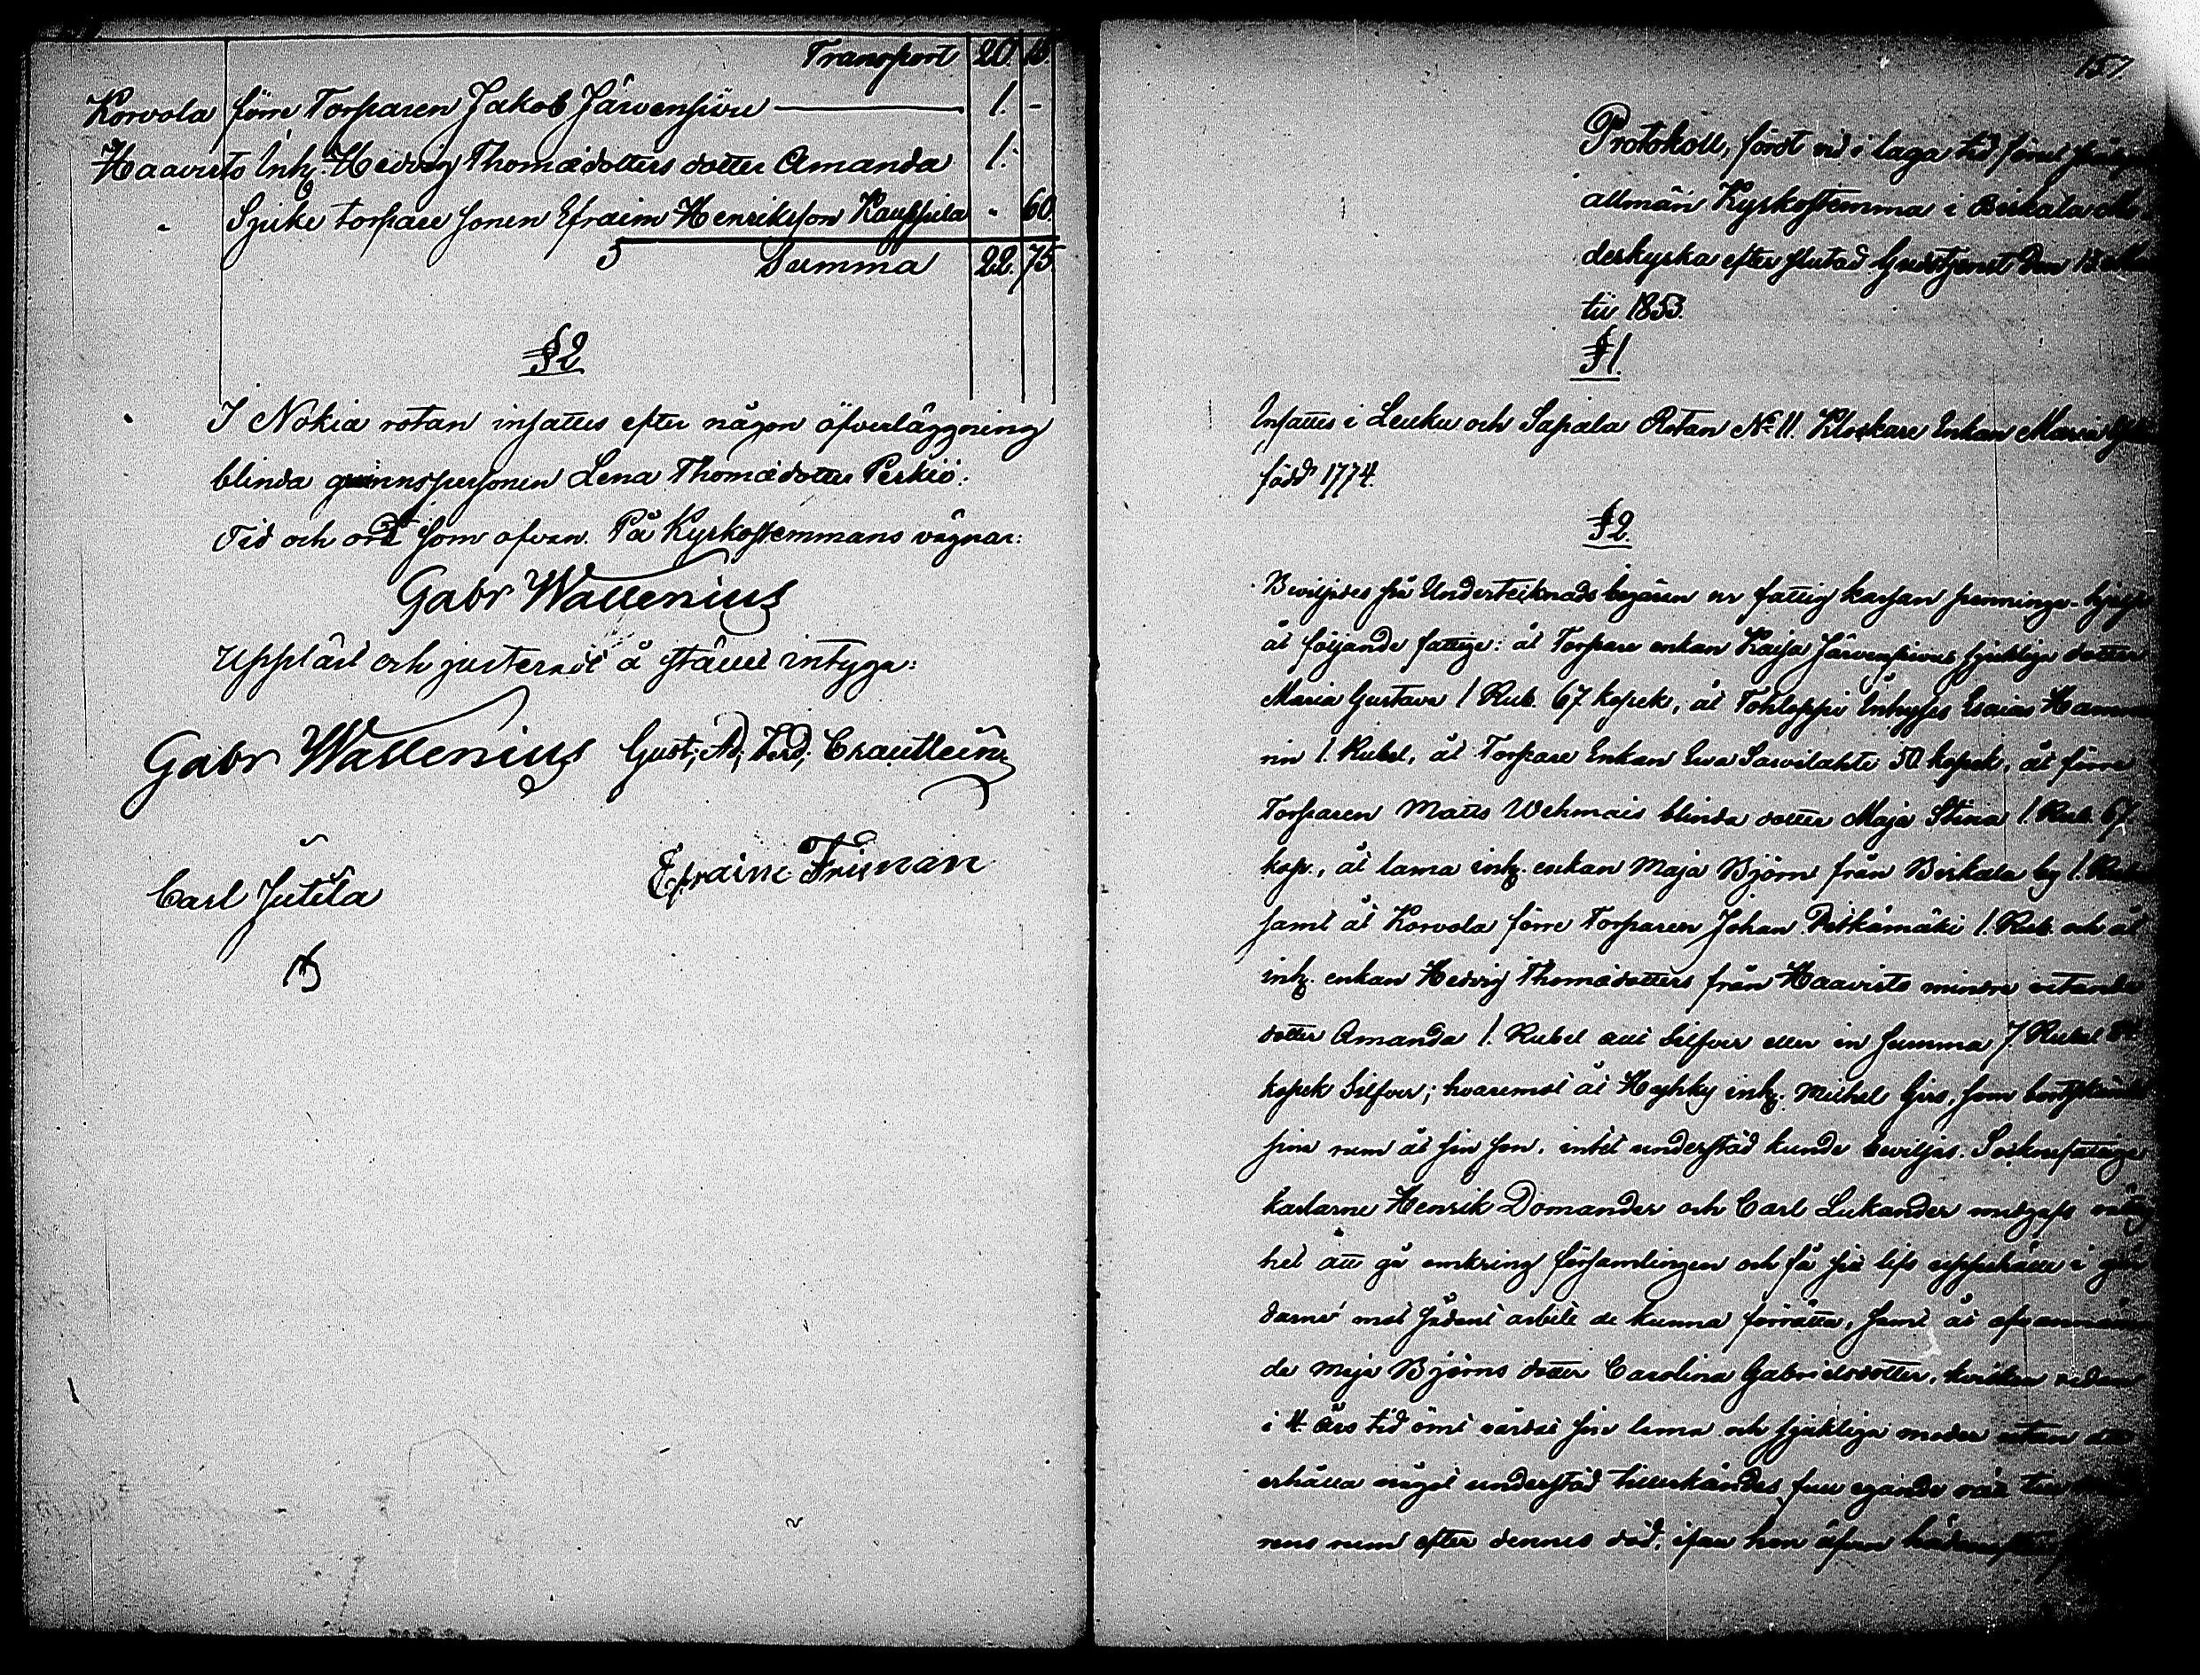 Transport 20. 15.
Korvola förre Torparen Jakob Järvensivu 1. -
Haavisto Inh. Hedvig Thomædotters dotter Amanda 1. -
" Sjuke torpare sonen Efraim Henriksson Kauppila - 60.
Summa 22. 75.
§ 2
I Nokia rotan insattes efter någon öfverläggning
blinda qvinnspersonen Lena Thomædotter Perkiö.
Tid och ort som ofvan. På Kyrkostemmans vägnar:
Gabr Wallenius
Uppläst och justeradt å stället intyga:
Gabr Wallenius Gust; Ad; Ferd;
Carl Jutila Efraim Friman
157
Protokoll, fördt vid i laga tid förut
allmän Kyrkostemma i Birkala Mo-
derkyrka efter slutad Gudstjenst den 13
tii 1853.
§ 1.
Insattes i Leuku och Sapala Rotan No 11. Klockare Enkan Maria
född 1774.
§ 2.
Beviljades på Undertecknads begäran ur fattig kassan penninge-hjelp
åt följande fattige: åt Torpare enkan Kaisa Järvensivus sjukliga dotter
Maria Gustava 1 Rub. 67 kopek, åt Tohloppi Inhyses Esaias
nin 1. Rubel, åt Torpare Enkan Eva Sarvilahti 50 kopek, åt förre
Torparen Matts Wehmais blinda dotter Maja Stina 1. Rub. 67.
kop., åt lama inh. enkan Maja Björn från Birkala by 1. Rubel
samt åt Korvola förre Torparen Johan Pitkämäki 1. Rub. och åt
inh. enkan Hedvig Thomædotters från Haavisto mindre vetande
dotter Amanda 1. Rubel allt Silfver eller in summa 7. Rubel 84
kopek Silfver; hvaremot åt Hyhky inh. Michel Girs, som
sine rum åt sin son, intet understöd kunde beviljas. Sockenfattige
karlarne Henrik Domander och Carl Lukander medgafs rättig-
het att gå omkring församlingen och få sitt lifs uppehälle i går-
darne mot sådant arbete de kunna förrätta, samt åt ofvannämn-
de Maja Björns dotter Carolina Gabrielsdotter, hvilken redan
i 4. års tid ömt vårdat sin lama och sjukliga moder utan att
erhålla något understöd tillerkändes full egande rätt till
rens rum efter dennes död, ifall hon äfven hädanefter